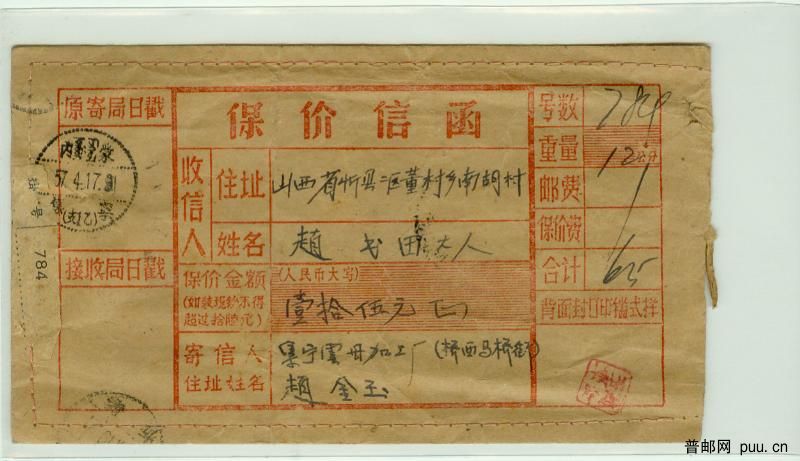 保价信函
原寄局日戳
内蒙古
57.4.17.
784
接收局日戳
收信人
住址
山西省忻县二区董村乡南胡村
姓名
趙 田大人
保价金额
(如装现钞不得
超过拾陸元)
(人民币大写)
壹拾伍元
寄信人
住址姓名
集宁雲母加工厂(桥西马桥街)
趙金玉
号数
784
重量
12
邮费
保价费
合计
65
背面封口印鑑式样
普邮网 puu.cn